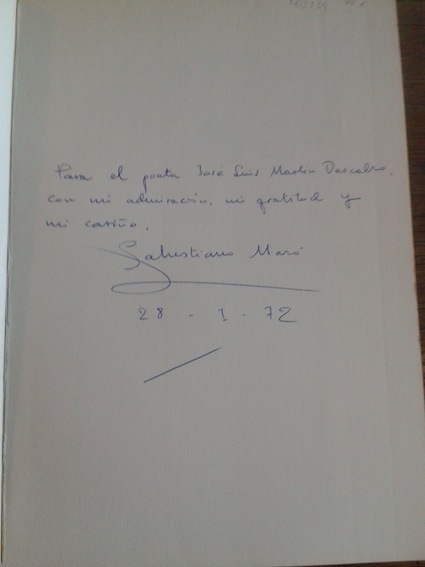 Para el poeta José Luis Martín Descalzo,
con mi admiración, mi gratitud y
mi cariño,
Salustiano Masó
28 - 1 - 72